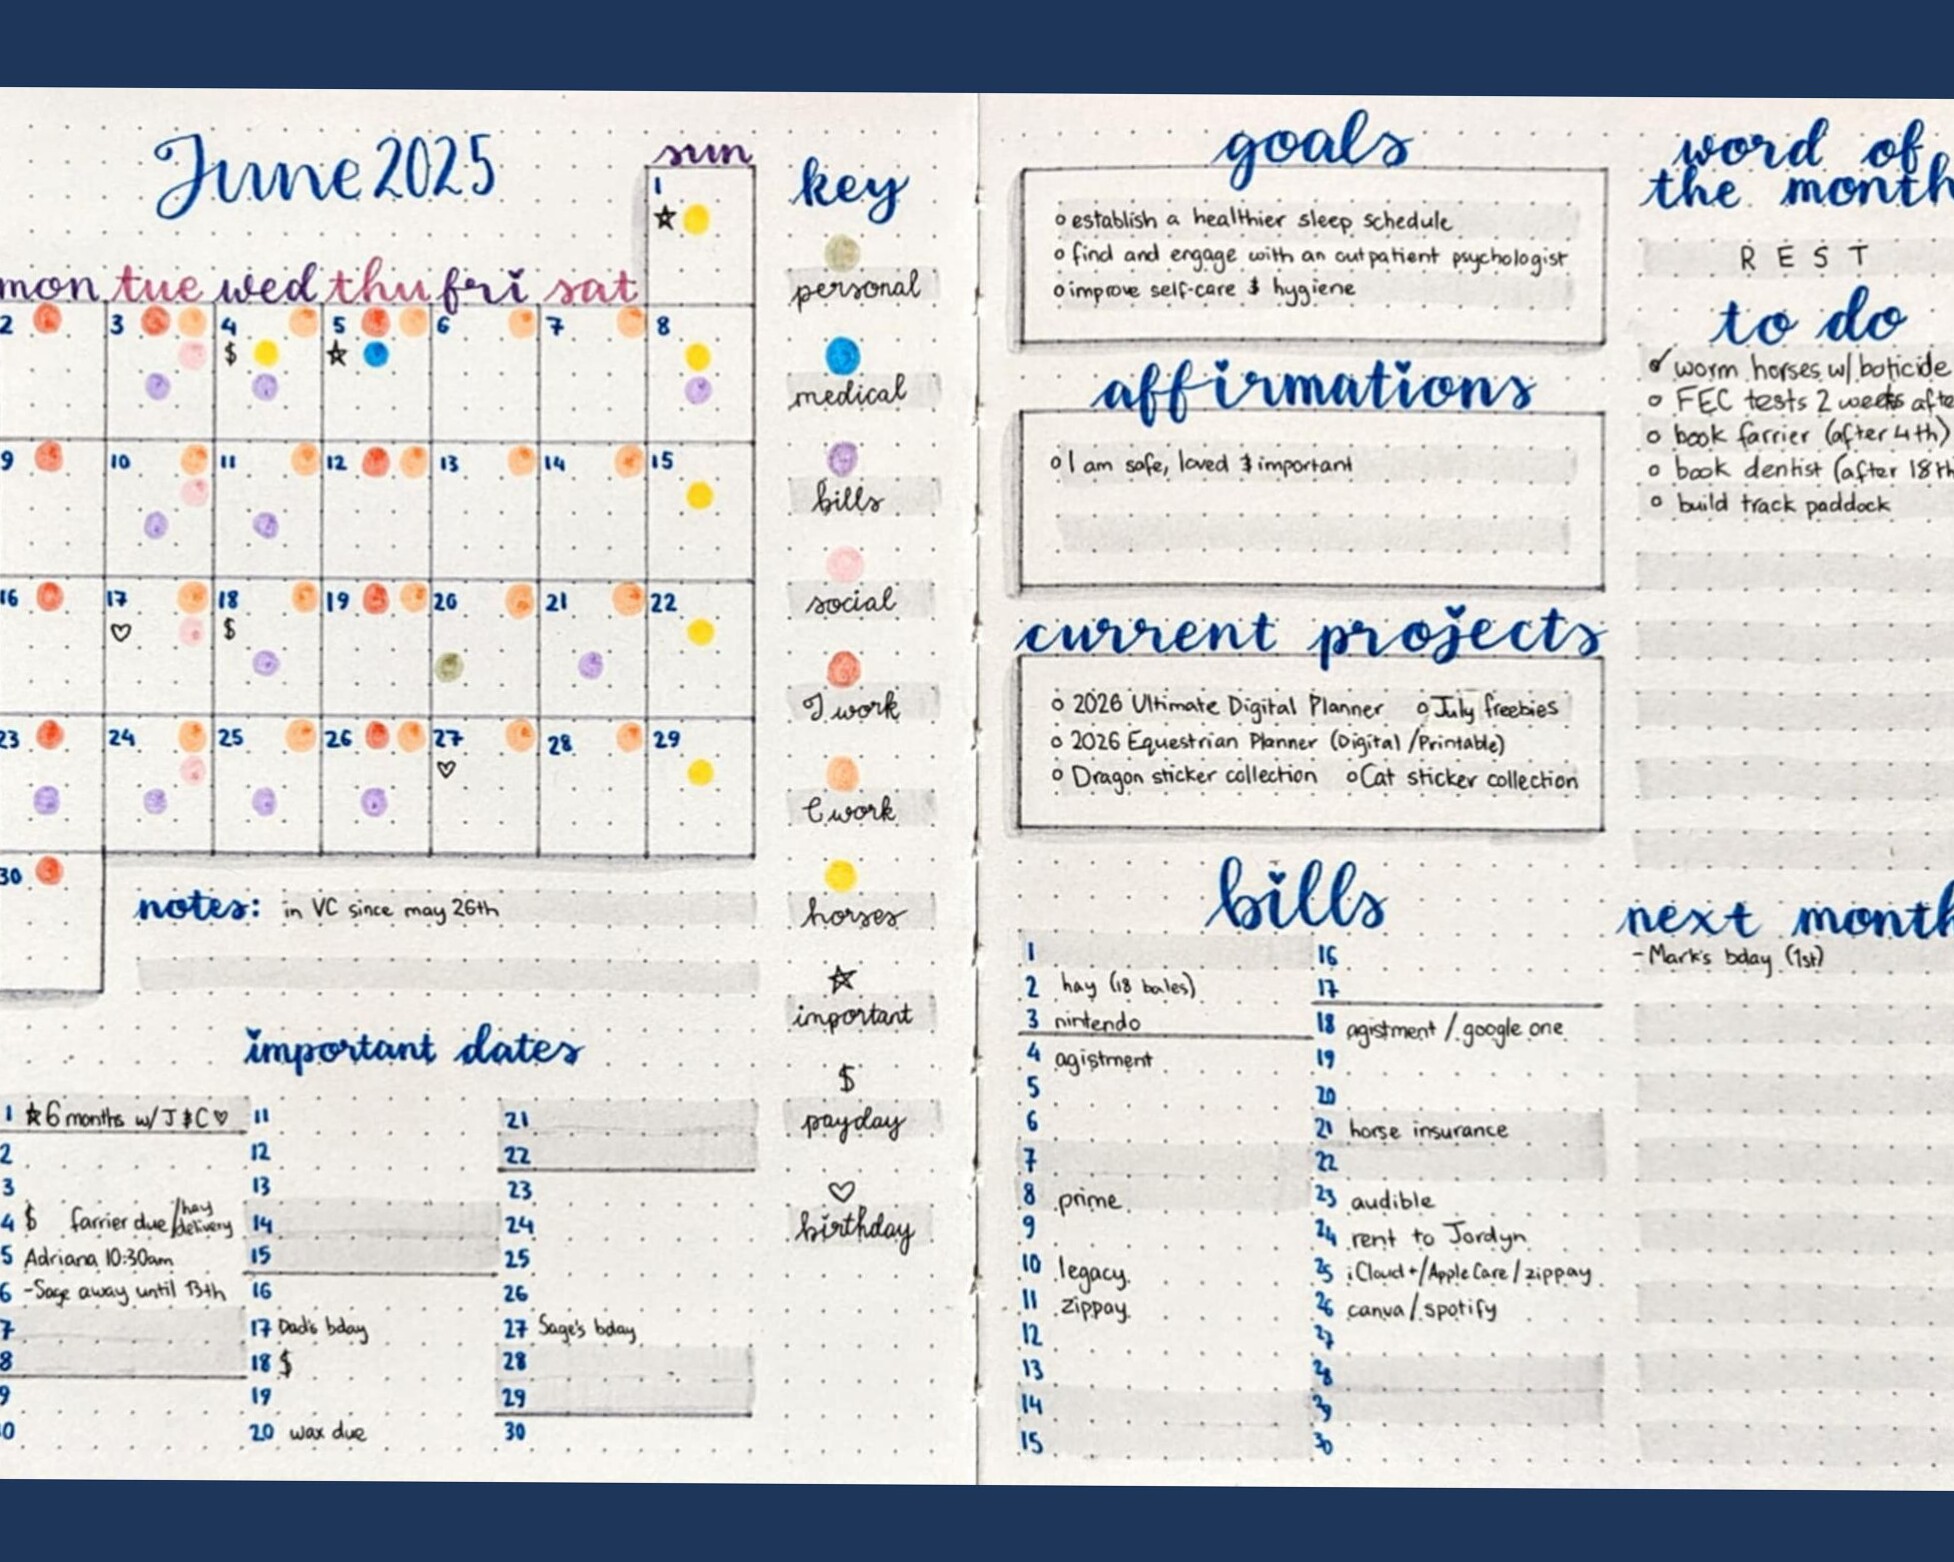 June 2025
sun
mon tue wed thu fri sat
1
2 3 4 5 6 7 8
$
9 10 11 12 13 14 15
16 17 18 19 20 21 22
♡ $
23 24 25 26 27 28 29
♡
30
notes: in VC since may 26th
important dates
1 ☆ 6 months w/ J & C ♡
2
3
4 $ farrier due / hay delivery
5 Adriana 10:30am
6 - Sage away until 13th
7
8
9
0
11
12
13
14
15
16
17 Dad's bday
18 $
19
20 wax due
21
22
23
24
25
26
27 Sage's bday
28
29
30
key
personal
medical
bills
social
J work
C work
horses
☆
important
$
payday
♡
birthday
goals
o establish a healthier sleep schedule
o find and engage with an outpatient psychologist
o improve self-care & hygiene
affirmations
o I am safe, loved & important
current projects
o 2026 Ultimate Digital Planner o July freebies
o 2026 Equestrian Planner (Digital/Printable)
o Dragon sticker collection o Cat sticker collection
bills
1
2 hay (18 bales)
3 nintendo
4 agistment
5
6
7
8 prime
9
10 legacy
11 zippay
12
13
14
15
16
17
18 agistment / google one
19
20
21 horse insurance
22
23 audible
24 rent to Jordyn
25 iCloud+/AppleCare/zippay
26 canva/spotify
27
28
29
30
word of
the month
REST
to do
worm horses w/ boticide
o FEC tests 2 weeks afte
o book farrier (after 4th)
o book dentist (after 18th
o build track paddock
next month
- Mark's bday (1st)